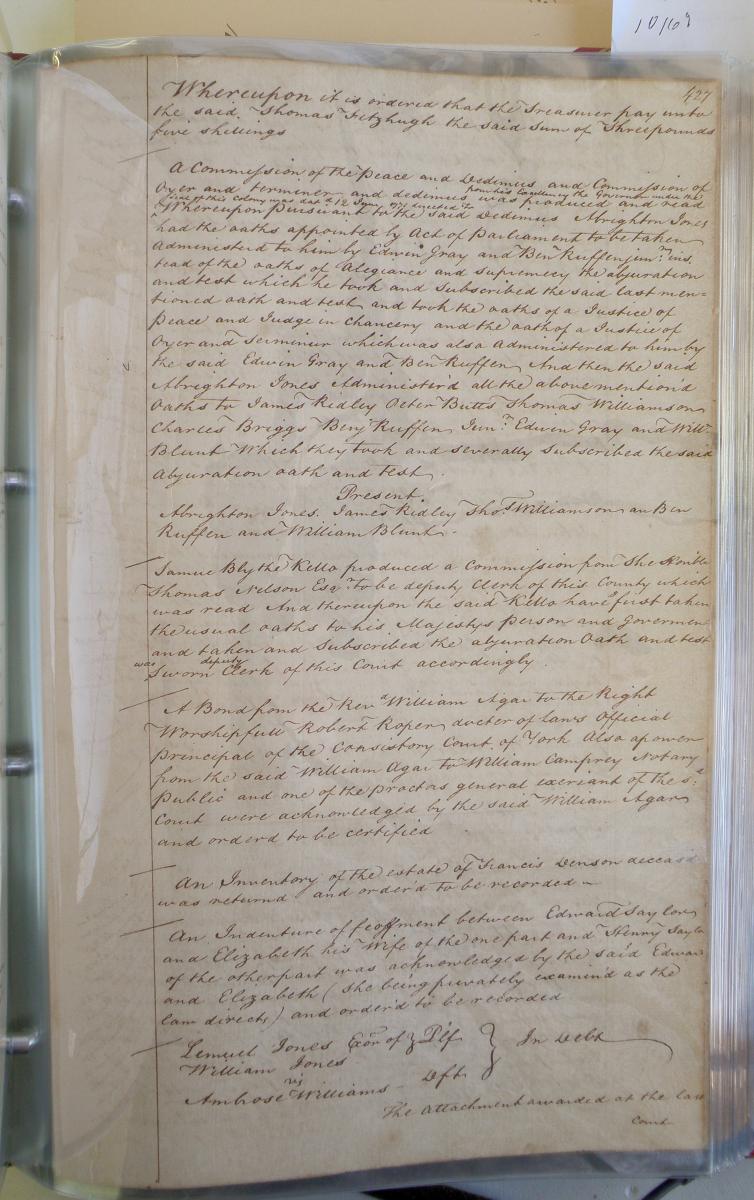 10/68
427
Whereupon it is ordered that the Treasurer pay unto
the said Thomas Fitzhugh the said Sum of Three pounds
five shillings
A Commission of the Peace and Dedimus and Commission of
Oyer and terminer and dedimus was produced and read
from his Excellency the Governor under the
Seal of this Colony
Whereupon Pursuant to the said Dedimus Abrighton Jones
had the oaths appointed by Act of Parliament to be taken
Administerd to him by Edwin Gray and Ben Ruffen junr. ins
tead of the oaths of Alegiance and Supremecy the abjuration
and test which he took and Subscribed the said last men=
tioned oath and test and took the oaths of a Justice of
Peace and Judge in Chancery and the oath of a Justice of
Oyer and Terminer which was also Administered to him by
the said Edwin Gray and Ben Ruffen And then the said
Abrighton Jones Administer'd all the above mention'd
Oaths to James Ridley Peter Butts Thomas Williamson
Charles Briggs Benj Ruffen Junr. Edwin Gray and Willm
Blunt Which they took and severally Subscribed the said
Abjuration oath and test
Present.
Abrighton Jones. James Ridley Thos Williamson an Ben
Ruffen and William Blunt.
Samuel Blythe Kello produced a Commission from The Honble
Thomas Nelson Esqr. to be deputy Clerk of this County which
was read And thereupon the said Kello have first taken
the usual oaths to his Majestys Person and Goverment
and taken and Subscribed the abjuration Oath and test
was deputy
Sworn Clerk of this Court accordingly.
A Bond from the Revd William Agar to the Right
Worshipfull Robert Roper docter of laws Official
Principal of the Consistory Court of York Also a power
from the said William Agar to William Camprey Notary
Public and one of the Proctas general of the sd.
Court were acknowledged by the said William Agar
and orderd to be certified
An Inventory of the estate of Francis Denson deceasd
was returnd and order'd to be recorded
An Indenture of feoffment between Edward Saylor
and Elizabeth his Wife of the one part and Henry Saylor
of the other part was acknowledged by the said Edward
and Elizabeth (She being privately examin'd as the
law directs) and order'd to be recorded
Lemuel Jones Exor of Plf
William Jones
vs In Debt
Ambrose Williams Dft
The Attachment awarded at the last
Court